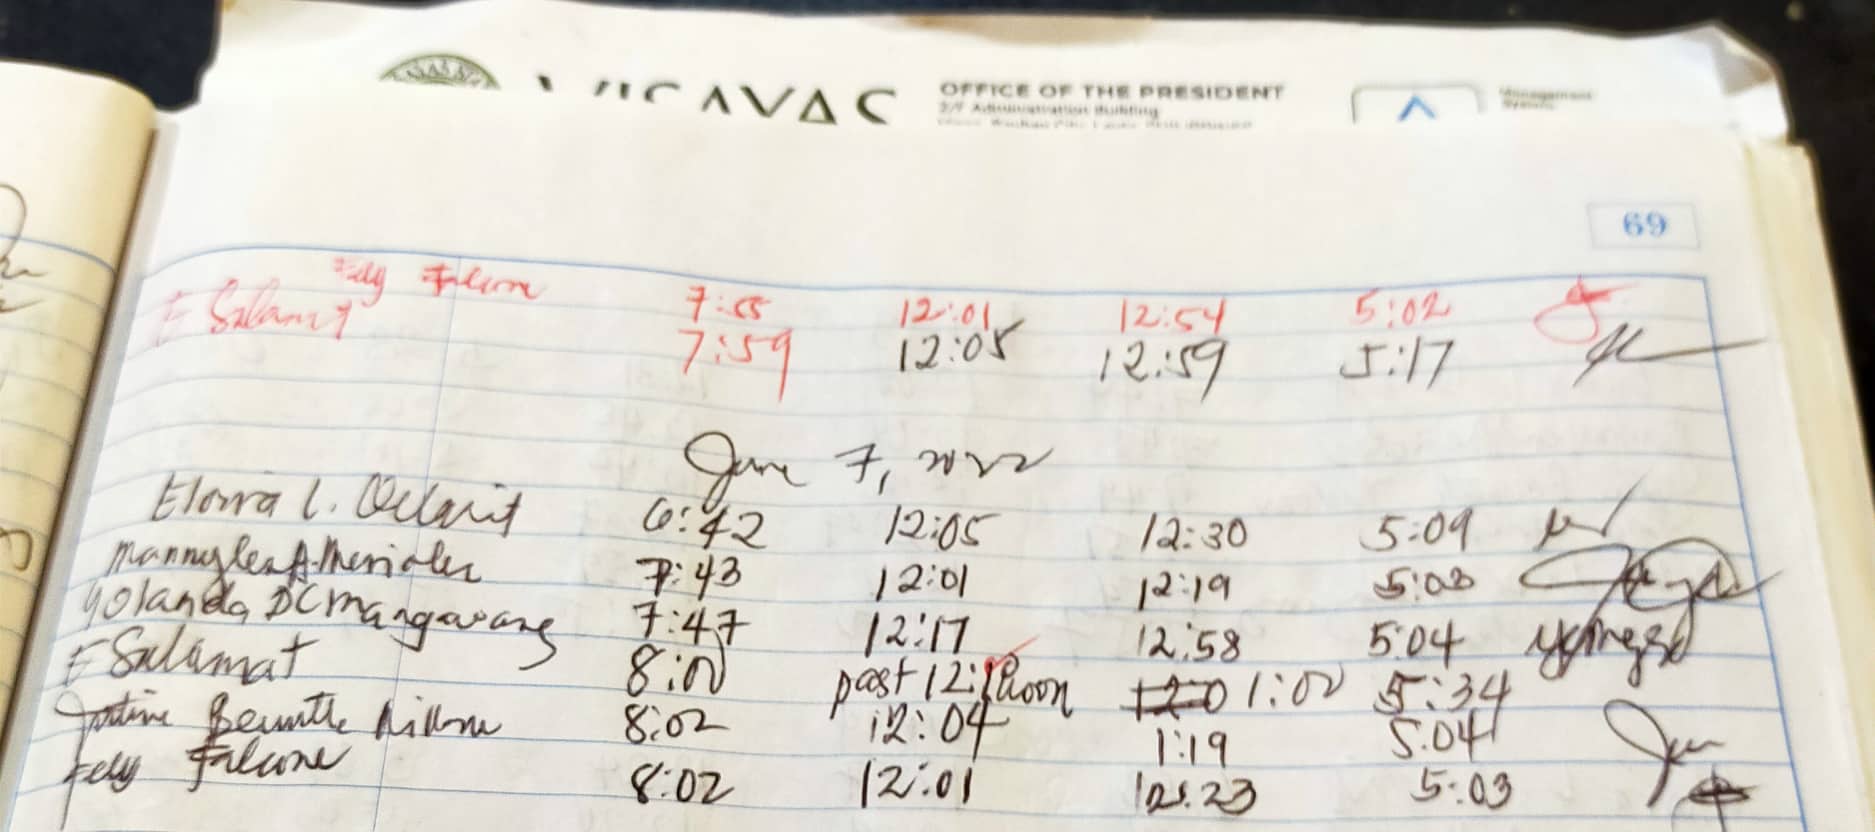 VISAYAS
OFFICE OF THE PRESIDENT
2/F Administration Building
Management
System
69
Fely Falcone 7:55 12:01 12:54 5:02
F Salamat 7:59 12:05 12:59 5:17
June 7, 2022
Elorra L. 6:42 12:05 12:30 5:09
7:43 12:01 12:19 5:03
Yolanda DC Mangaoang 7:47 12:17 12:58 5:04
F Salamat 8:00 past 12: Noon 1:00 5:34
8:02 12:04 1:19 5:04
Fely Falcone 8:02 12:01 12:23 5:03